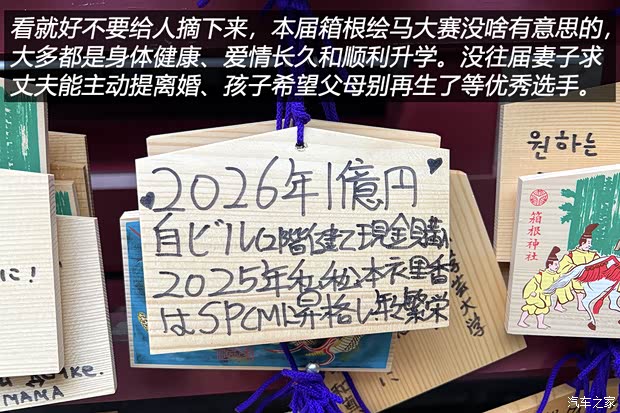 看就好不要给人摘下来，本届箱根绘马大赛没啥有意思的，
大多都是身体健康、爱情长久和顺利升学。没往届妻子求
丈夫能主动提离婚、孩子希望父母别再生了等优秀选手。
2026年1億円
自ビル12階建て現金購入
2025年私松本衣里香
はSPCMに昇格し年繁栄
원하는
箱根神社
に!
MAMA
学芸大学
汽车之家